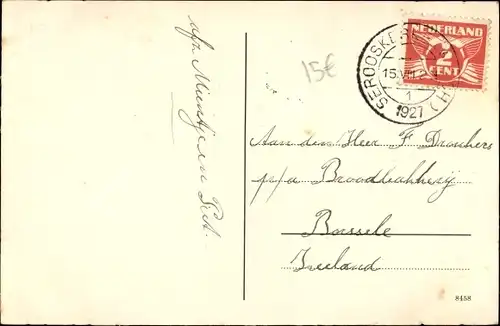 afz. Mientje en Piet.
15€
NEDERLAND
2
CENT
SEROOSKERKE
15.VIII
1
1927
Aan den Heer F Drooshers
p/a Broodbakkerij
Borssele
Zeeland
8458